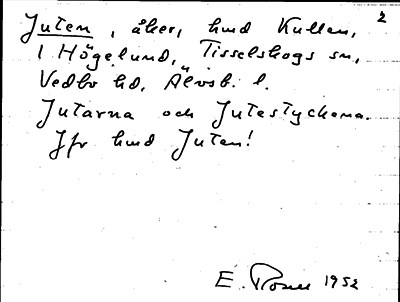 2
Juten, åker, hmd Kullen,
1 Högelund, Tisselskogs sn,
Vedbo hd, Älvsb. l.
Jutarna och Jutestyckena.
Jfr hmd Juten!
E. Rosell 1952